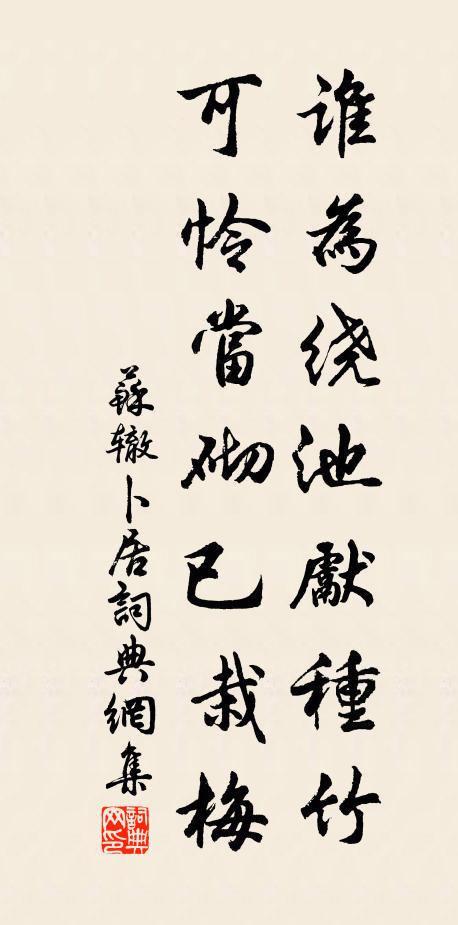 誰為绕池獻種竹
可怜當砌已栽梅
蘇辙卜居詞典網集
詞典网印